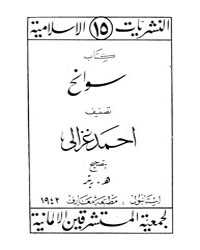 النشريات ١٥ الاسلامية
كتاب
سوانح
تصنيف
احمد غزالى
بتصحيح
ه. ريتر
استانبول، مطبعة معارف ١٩٤٢
لجمعية المستشرقين الالمانية